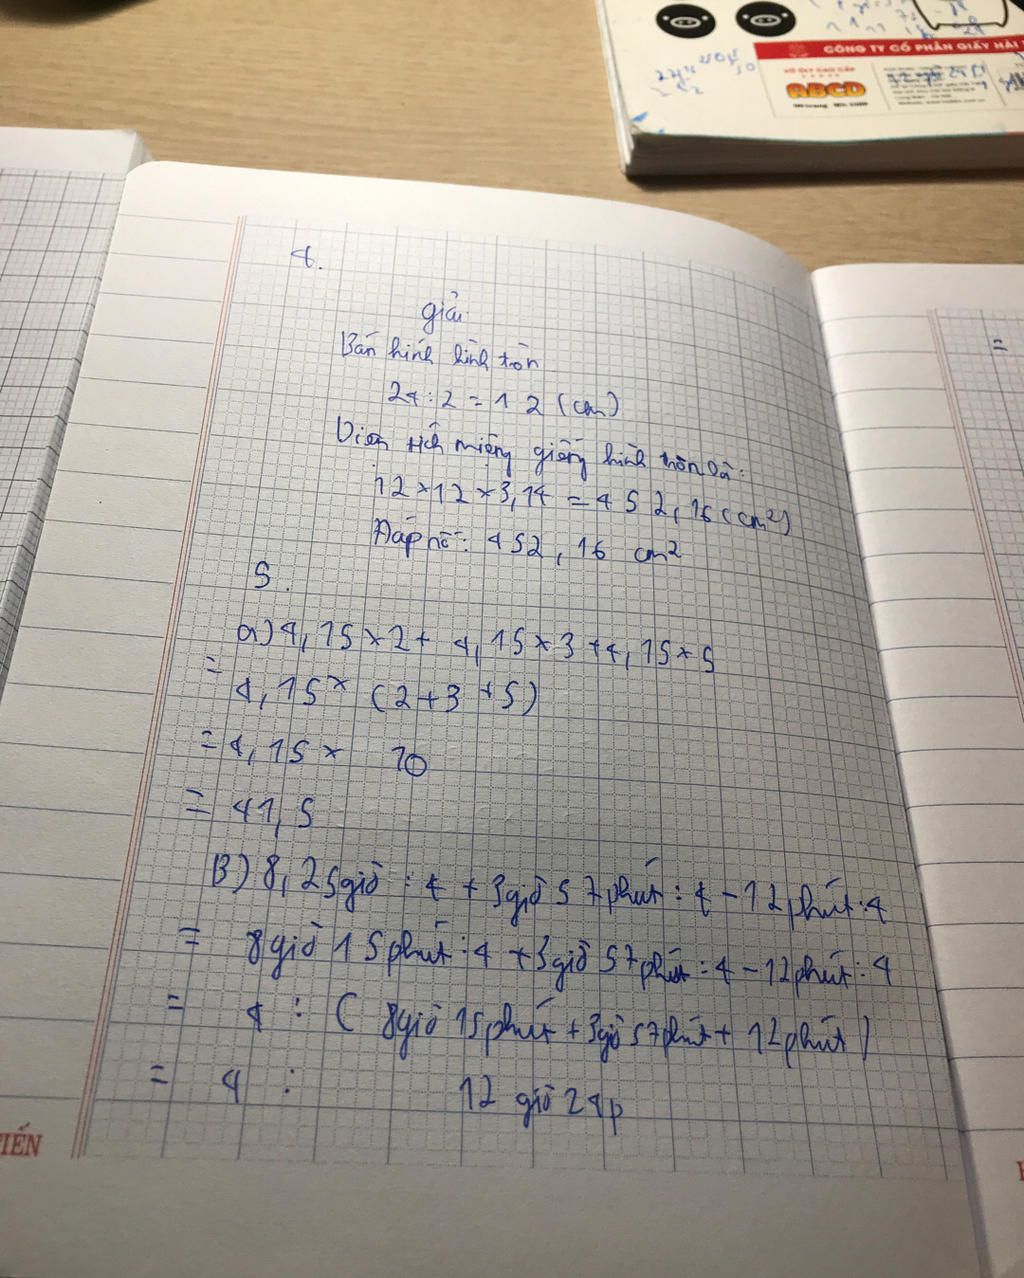 CÔNG TY CỔ PHẦN GIẤY HẢI T
VỞ ÔLY CAO CẤP
ABCD
4.
giải
Bán kính hình tròn
24 : 2 = 12 (cm)
Diện tích miệng giếng hình tròn là:
12 × 12 × 3,14 = 452,16 (cm²)
Đáp số: 452,16 cm²
5.
a) 4,15 × 2 + 4,15 × 3 + 4,15 × 5
= 4,15 × (2 + 3 + 5)
= 4,15 × 10
= 41,5
B) 8,25 giờ : 4 + 3 giờ 57 phút : 4 - 12 phút : 4
= 8 giờ 15 phút : 4 + 3 giờ 57 phút : 4 - 12 phút : 4
= 4 : ( 8 giờ 15 phút + 3 giờ 57 phút + 12 phút )
= 4 : 12 giờ 24p
TIẾN
=